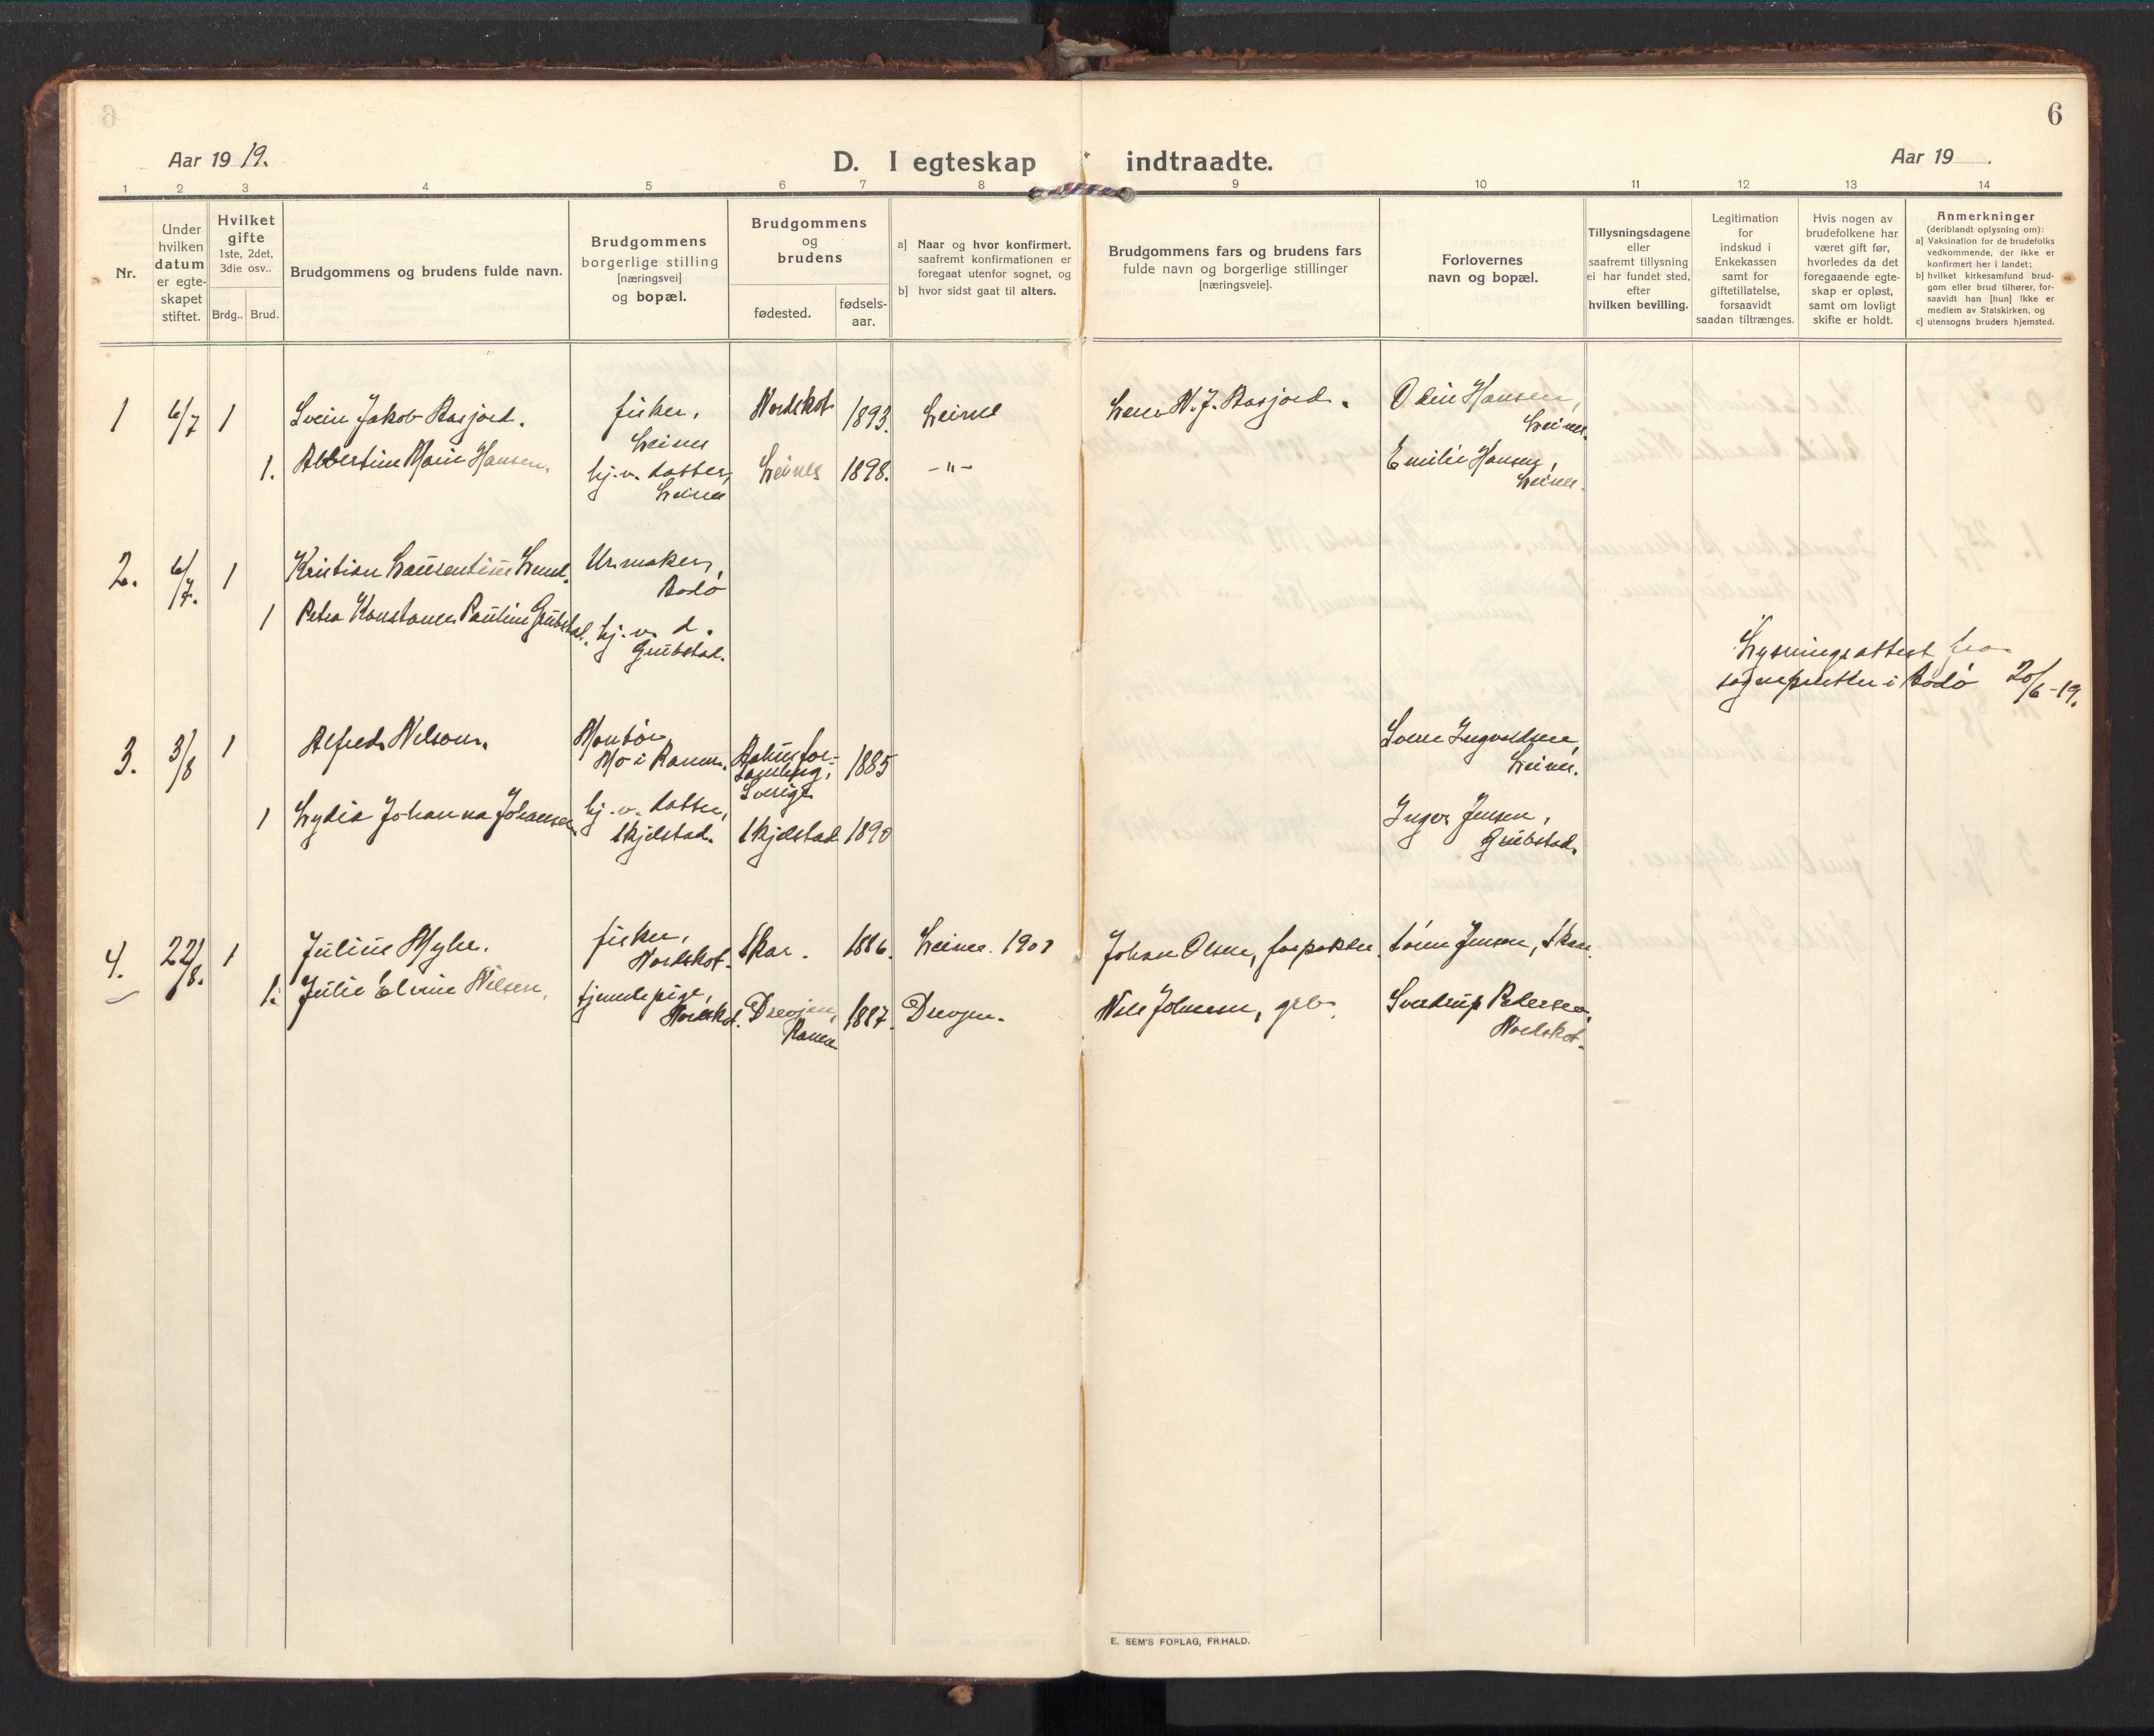 6
Aar 19 19.
D. I egteskap indtraadte.
Aar 19 .
1 2 3 4 5 6 7 8 9 10 11 12 13 14
Nr.
Under
hvilken
datum
er egte-
skapet
stiftet.
Hvilket
gifte
1ste, 2det,
3die osv..
Brdg.. Brud.
Brudgommens og brudens fulde navn.
Brudgommens
borgerlige stilling
[næringsvei]
og bopæl.
Brudgommens
og
brudens
fødested.
fødsels-
aar.
a] Naar og hvor konfirmert,
saafremt konfirmationen er
foregaat utenfor sognet, og
b] hvor sidst gaat til alters.
Brudgommens fars og brudens fars
fulde navn og borgerlige stillinger
[næringsveie].
Forlovernes
navn og bopæl.
Tillysningsdagene
eller
saafremt tillysning
ei har fundet sted,
efter
hvilken bevilling.
Legitimation
for
indskud i
Enkekassen
samt for
giftetillatelse,
forsaavidt
saadan tiltrænges.
Hvis nogen av
brudefolkene har
været gift før,
hvorledes da det
foregaaende egte-
skap er opløst,
samt om lovligt
skifte er holdt.
Anmerkninger
(deriblandt oplysning om):
a] Vaksination for de brudefolks
vedkommende, der ikke er
konfirmert her i landet;
b] hvilket kirkesamfund brud-
gom eller brud tilhører, for-
saavidt han [hun] ikke er
medlem av Statskirken, og
c] utensogns bruders hjemsted.
1 6/7 1 Svein Jakob Rasjord. fisker, Nordskot 1893. Leines N. J. Rasjord. Odin Hansen,
Leines Leines.
1. Albertine Marie Hansen, hj.v. datter, Leines 1898. -"- Emilie Hansen,
Leines Leines.
2. 6/7. 1 Kristian Laurentius Lund. Urmaker,
Bodø
1 Petra Konstance Pauline Grübstad. hj.v. d.
Grübstad.
Lysningsattest fra
sognepresten i Bodø 20/6-19.
3. 3/8 1 Alfred Nilson. Montør, 1885 Sverre Ingvaldsen,
Mo i Ranen. Sverige Leines.
1 Lydia Johanna Johansen hj.v. datter, Skjelstad 1890 Inger Jensen,
Skjelstad. Grübstad.
4. 22/8. 1 Julius Myhre. fisker, Skar. 1886. Leines. Johan Olsen, forpakter. Sören Jensen, Skar.
Nordskot.
1. Julie Elvine Nilsen, tjenestepige, Drevjen, 1887. Drevjen. Nils Johnsen, grb. Sverdrup Pedersen,
Nordskot. Ranen. Nordskot.
E. SEM'S FORLAG, FR.HALD.